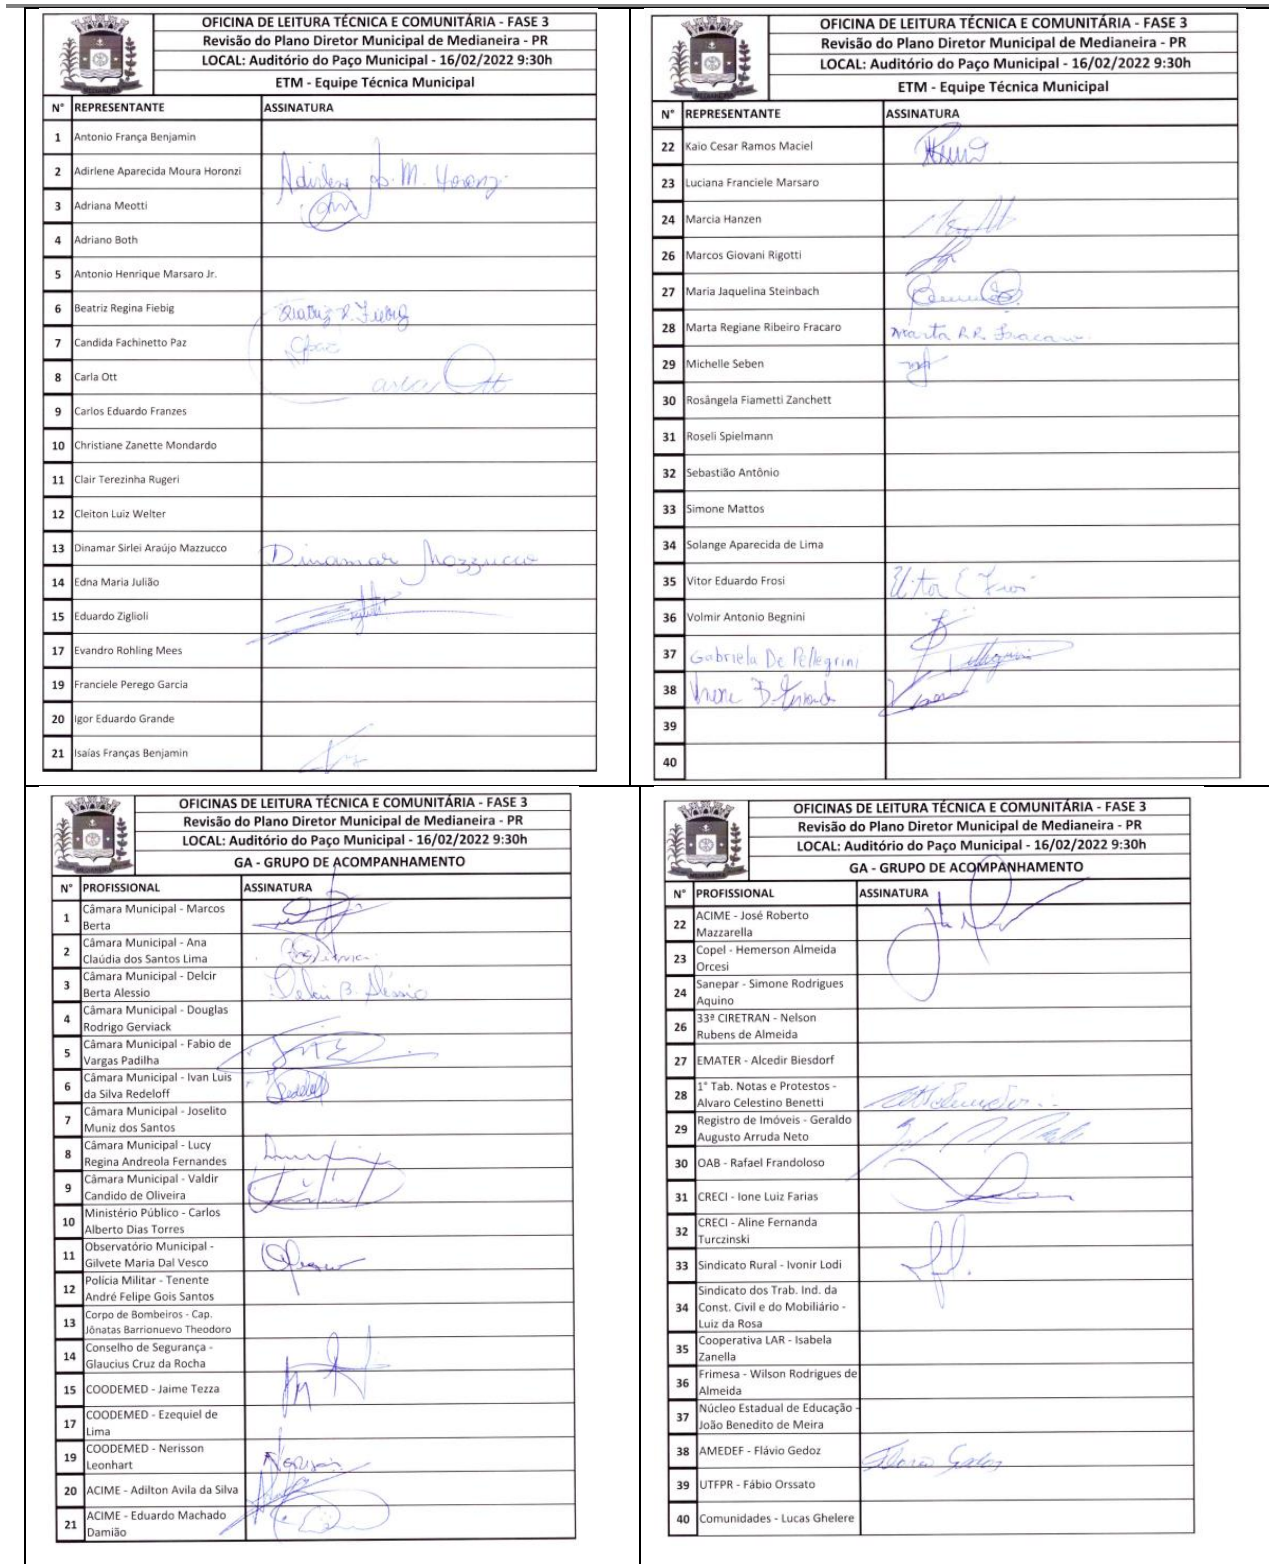 OFICINA DE LEITURA TÉCNICA E COMUNITÁRIA - FASE 3
Revisão do Plano Diretor Municipal de Medianeira - PR
LOCAL: Auditório do Paço Municipal - 16/02/2022 9:30h
ETM - Equipe Técnica Municipal
N° REPRESENTANTE ASSINATURA
1 Antonio França Benjamin
2 Adirlene Aparecida Moura Horonzi Adirlene Ap. M. Horonzi
3 Adriana Meotti
4 Adriano Both
5 Antonio Henrique Marsaro Jr.
6 Beatriz Regina Fiebig Beatriz R. Fiebig
7 Candida Fachinetto Paz
8 Carla Ott Carla Ott
9 Carlos Eduardo Franzes
10 Christiane Zanette Mondardo
11 Clair Terezinha Rugeri
12 Cleiton Luiz Welter
13 Dinamar Sirlei Araújo Mazzucco Dinamar Mazzucco
14 Edna Maria Julião
15 Eduardo Ziglioli
17 Evandro Rohling Mees
19 Franciele Perego Garcia
20 Igor Eduardo Grande
21 Isaías Franças Benjamin
OFICINA DE LEITURA TÉCNICA E COMUNITÁRIA - FASE 3
Revisão do Plano Diretor Municipal de Medianeira - PR
LOCAL: Auditório do Paço Municipal - 16/02/2022 9:30h
ETM - Equipe Técnica Municipal
N° REPRESENTANTE ASSINATURA
22 Kaio Cesar Ramos Maciel
23 Luciana Franciele Marsaro
24 Marcia Hanzen
26 Marcos Giovani Rigotti
27 Maria Jaquelina Steinbach
28 Marta Regiane Ribeiro Fracaro Marta R.R. Fracaro
29 Michelle Seben
30 Rosângela Fiametti Zanchett
31 Roseli Spielmann
32 Sebastião Antônio
33 Simone Mattos
34 Solange Aparecida de Lima
35 Vitor Eduardo Frosi Vitor E Frosi
36 Volmir Antonio Begnini
37 Gabriela De Pellegrini Pellegrini
38
39
40
OFICINAS DE LEITURA TÉCNICA E COMUNITÁRIA - FASE 3
Revisão do Plano Diretor Municipal de Medianeira - PR
LOCAL: Auditório do Paço Municipal - 16/02/2022 9:30h
GA - GRUPO DE ACOMPANHAMENTO
N° PROFISSIONAL ASSINATURA
1 Câmara Municipal - Marcos
Berta
2 Câmara Municipal - Ana
Claúdia dos Santos Lima
3 Câmara Municipal - Delcir
Berta Alessio Delcir B. Aléssio
4 Câmara Municipal - Douglas
Rodrigo Gerviack
5 Câmara Municipal - Fabio de
Vargas Padilha
6 Câmara Municipal - Ivan Luis
da Silva Redeloff Redeloff
7 Câmara Municipal - Joselito
Muniz dos Santos
8 Câmara Municipal - Lucy
Regina Andreola Fernandes
9 Câmara Municipal - Valdir
Candido de Oliveira
10 Ministério Público - Carlos
Alberto Dias Torres
11 Observatório Municipal -
Gilvete Maria Dal Vesco
12 Polícia Militar - Tenente
André Felipe Gois Santos
13 Corpo de Bombeiros - Cap.
Jônatas Barrionuevo Theodoro
14 Conselho de Segurança -
Glaucius Cruz da Rocha
15 COODEMED - Jaime Tezza
17 COODEMED - Ezequiel de
Lima
19 COODEMED - Nerisson
Leonhart Nerisson
20 ACIME - Adilton Avila da Silva
21 ACIME - Eduardo Machado
Damião
OFICINAS DE LEITURA TÉCNICA E COMUNITÁRIA - FASE 3
Revisão do Plano Diretor Municipal de Medianeira - PR
LOCAL: Auditório do Paço Municipal - 16/02/2022 9:30h
GA - GRUPO DE ACOMPANHAMENTO
N° PROFISSIONAL ASSINATURA
22 ACIME - José Roberto
Mazzarella
23 Copel - Hemerson Almeida
Orcesi
24 Sanepar - Simone Rodrigues
Aquino
26 33ª CIRETRAN - Nelson
Rubens de Almeida
27 EMATER - Alcedir Biesdorf
28 1° Tab. Notas e Protestos -
Alvaro Celestino Benetti
29 Registro de Imóveis - Geraldo
Augusto Arruda Neto
30 OAB - Rafael Frandoloso
31 CRECI - Ione Luiz Farias
32 CRECI - Aline Fernanda
Turczinski
33 Sindicato Rural - Ivonir Lodi
34 Sindicato dos Trab. Ind. da
Const. Civil e do Mobiliário -
Luiz da Rosa
35 Cooperativa LAR - Isabela
Zanella
36 Frimesa - Wilson Rodrigues de
Almeida
37 Núcleo Estadual de Educação -
João Benedito de Meira
38 AMEDEF - Flávio Gedoz Flavio Gedoz
39 UTFPR - Fábio Orssato
40 Comunidades - Lucas Ghelere